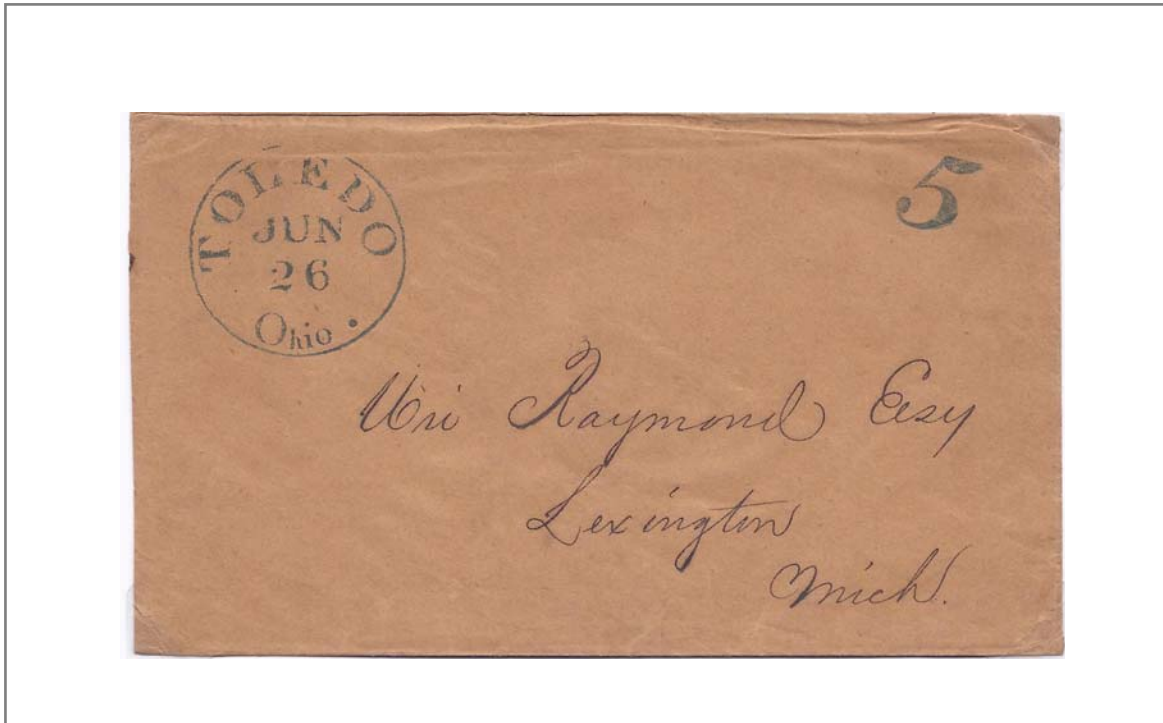 TOLEDO
JUN
26
Ohio
5
Uri Raymond Esq
Lexington
Mich.